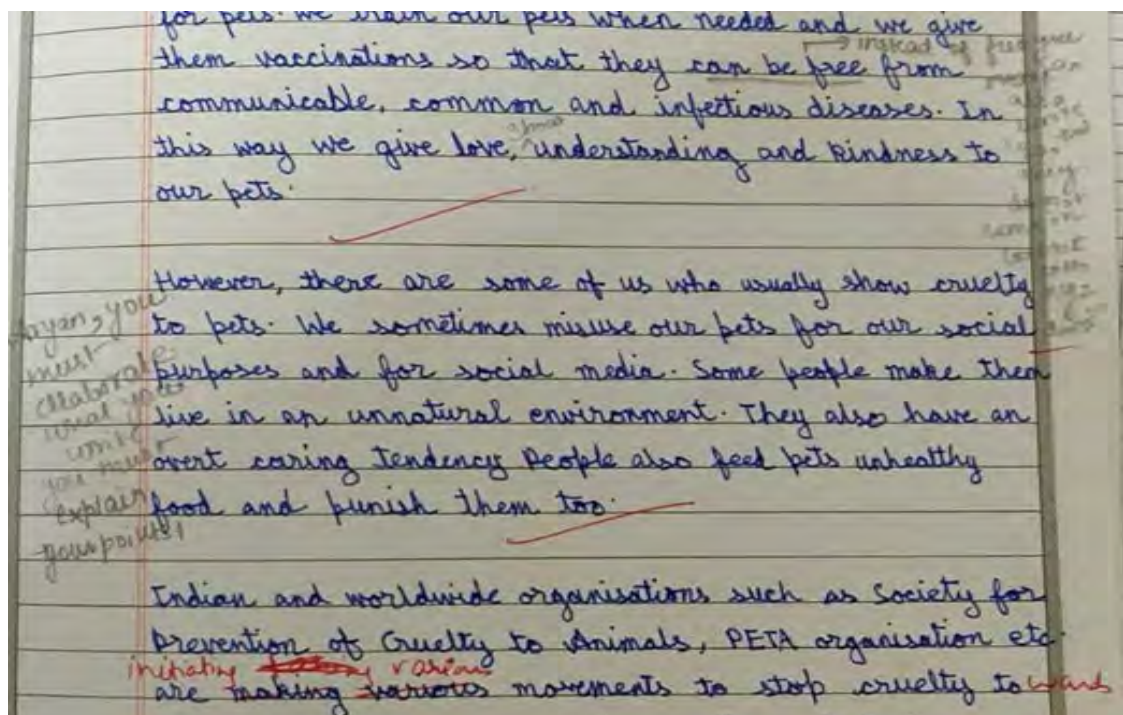 for pets. We train our pets when needed and we give
them vaccinations so that they can be free from
communicable, common and infectious diseases. In
this way we give love, understanding and kindness to
our pets.
→ instead of
However, there are some of us who usually show cruelty
to pets. We sometimes misuse our pets for our social
purposes and for social media. Some people make them
live in an unnatural environment. They also have an
overt caring Tendency People also feed pets unhealthy
food and punish them too.
you
must
what you
write
you must
explain
your points!
Indian and worldwide organisations such as Society for
Prevention of Cruelty to Animals, PETA organisation etc.
initiating various
are making various movements to stop cruelty towards